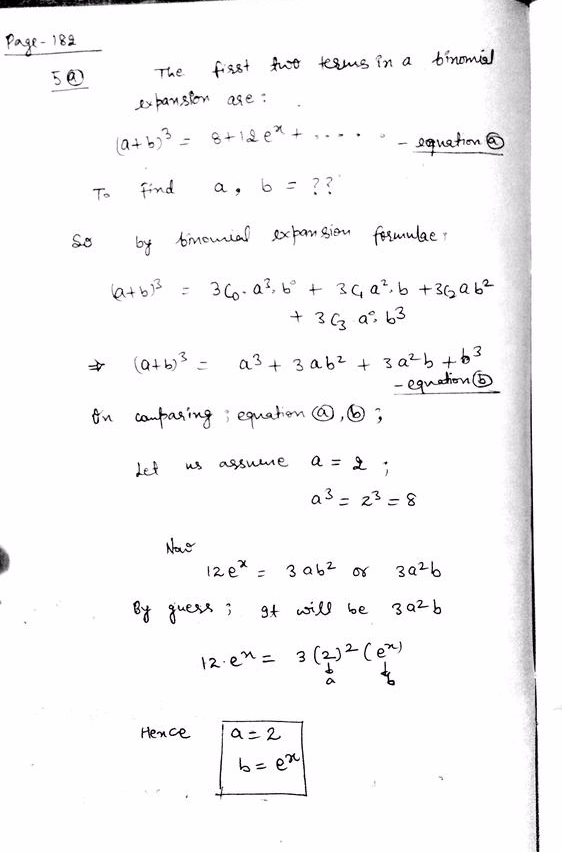 Page - 182
5 ⓐ The first two terms in a binomial
expansion are :
(a+b)³ = 8+12eˣ + ..... - equation ⓐ
To find a, b = ??
So by binomial expansion formulae,
(a+b)³ = 3C₀. a³, b⁰ + 3C₁ a². b + 3C₂ ab²
+ 3C₃ a⁰. b³
⇒ (a+b)³ = a³ + 3ab² + 3a²b + b³
- equation ⓑ
On comparing ; equation ⓐ, ⓑ ;
Let us assume a = 2 ;
a³ = 2³ = 8
Now
12eˣ = 3ab² or 3a²b
By guess ; It will be 3a²b
12.eˣ = 3(2)²(eˣ)
a b
Hence a = 2
b = eˣ